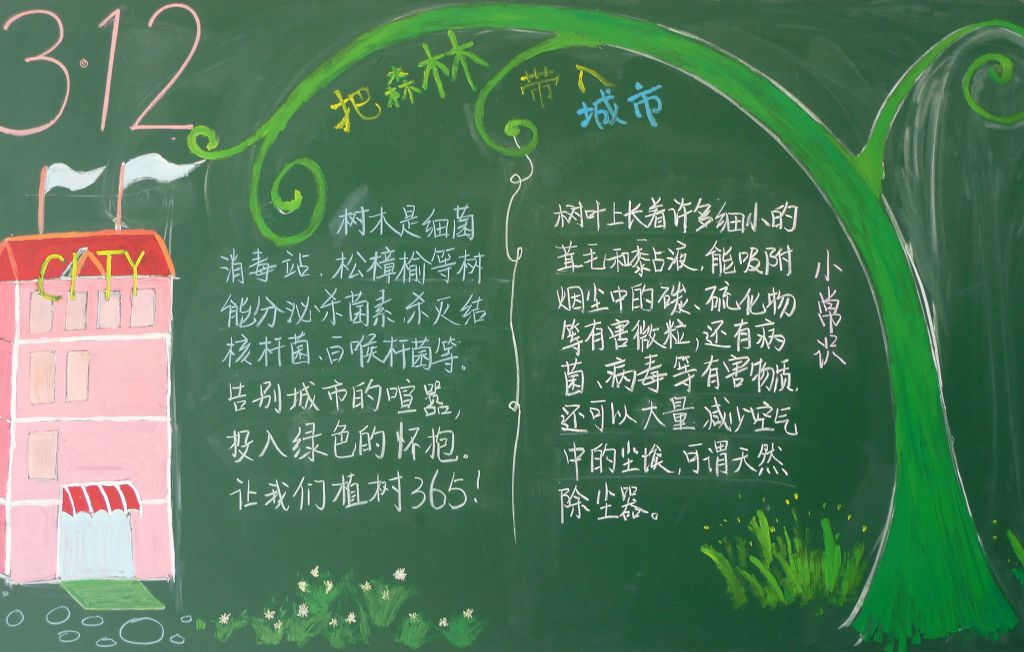 3·12
把森林带入城市
CITY
树木是细菌
消毒站、松樟榆等树
能分泌杀菌素、杀灭结
核杆菌、白喉杆菌等。
告别城市的喧嚣，
投入绿色的怀抱。
让我们植树365！
树叶上长着许多细小的
茸毛和黏液，能吸附
烟尘中的碳、硫化物
等有害微粒，还有病
菌、病毒等有害物质.
还可以大量减少空气
中的尘埃，可谓天然
除尘器。
小常识